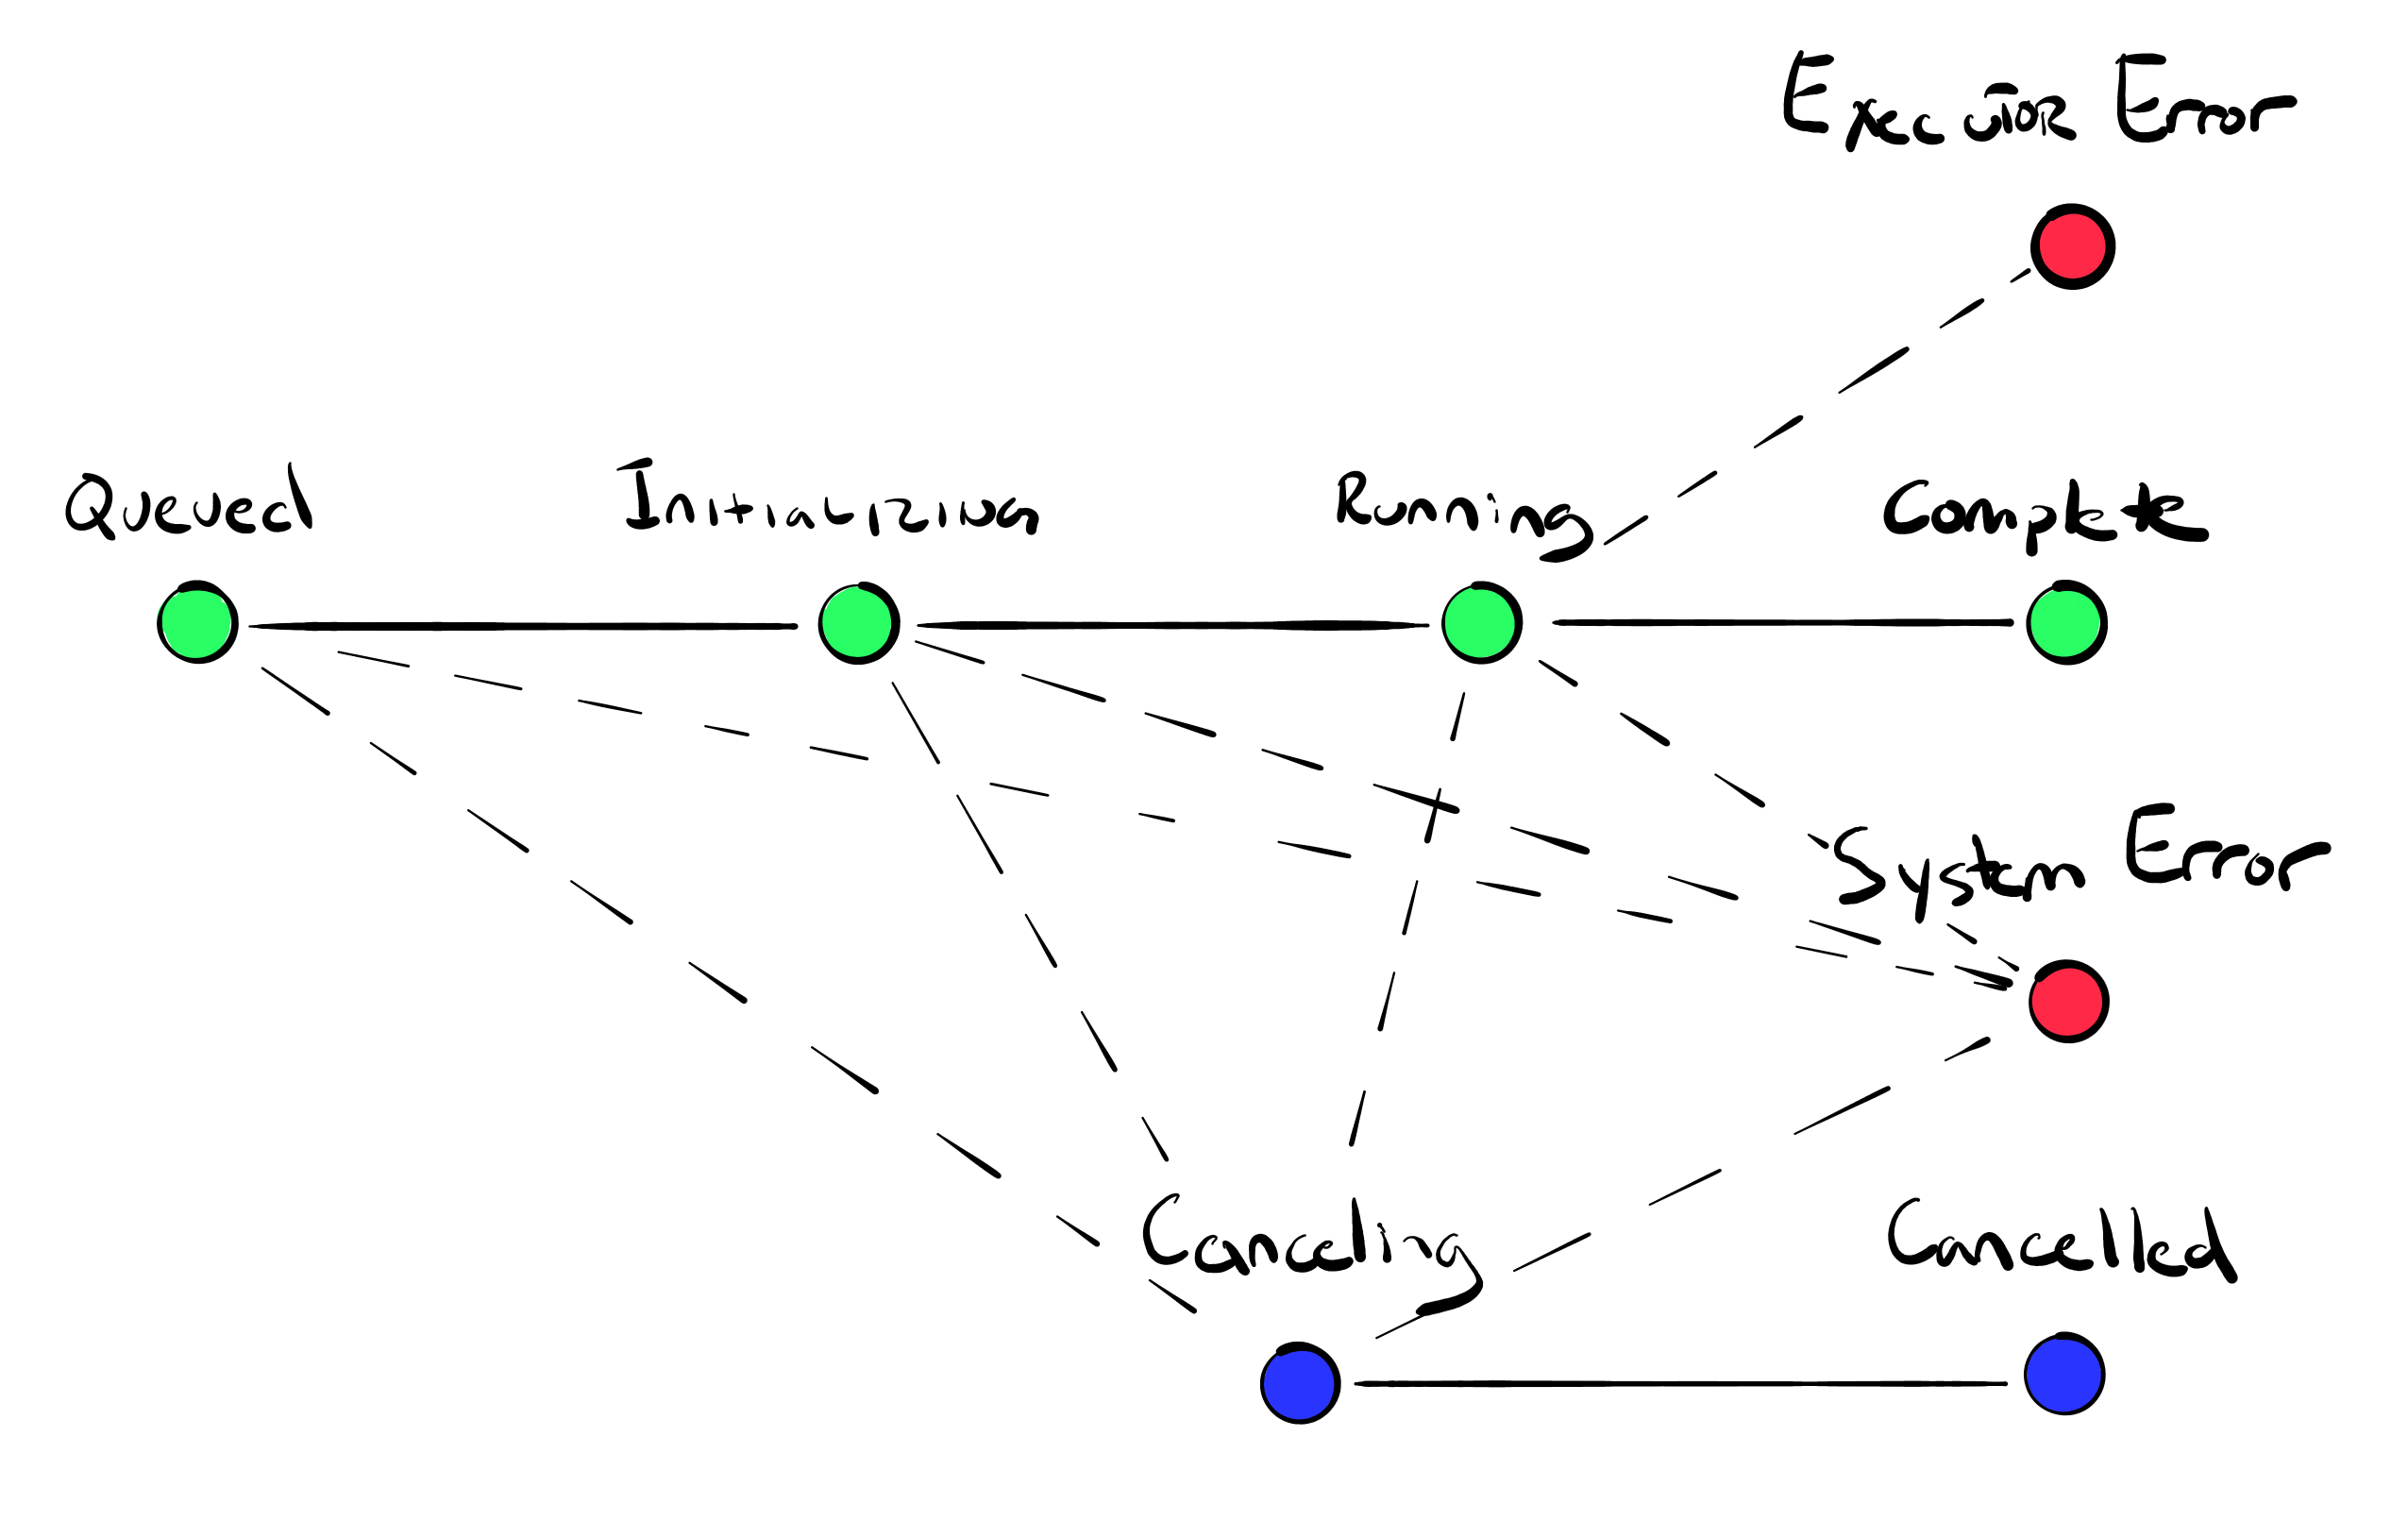 Executor Error
Queued
Initializing
Running
Complete
System Error
Canceling
Cancelled